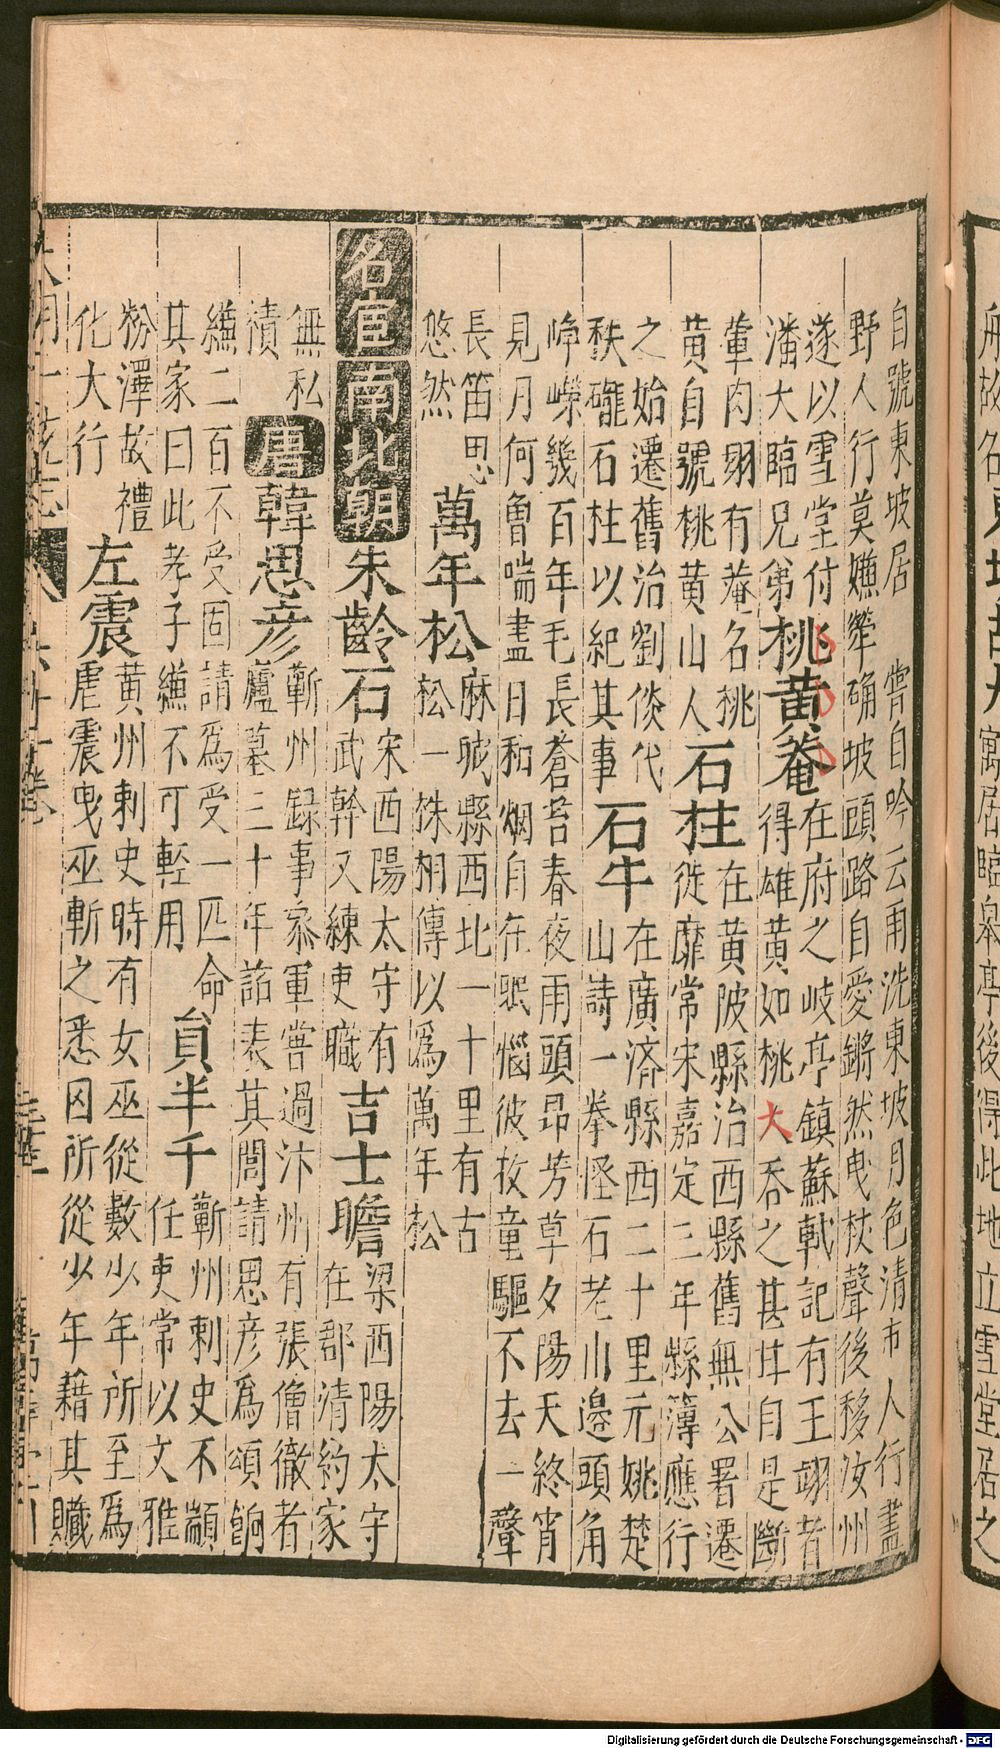 寓居臨皋亭後得此地立雪堂居之
自號東坡居 嘗自吟云雨洗東坡月色清市人行盡
野人行莫嫌犖确坡頭路自愛鏘然曳杖聲後移汝州
遂以雪堂付
潘大臨兄弟
桃黄菴
在府之岐亭鎮蘇軾記有王翊者
得雄黄如桃大吞之甚甘自是斷
葷肉翊有菴名桃
黄自號桃黄山人
石柱
在黄陂縣治西縣舊無公署遷
徙靡常宋嘉定三年縣簿應行
之始遷舊治劉倓代
秩礲石柱以紀其事
石牛
在廣済縣西二十里元姚楚
山詩一拳怪石老山邊頭角
崢嶸幾百年毛長蒼苔春夜雨頭昂芳草夕陽天終宵
見月何曾喘盡日和烟自在眠惱彼牧童驅不去一聲
長笛思
悠然
萬年松
麻城縣西北一十里有古
松一株相傳以爲萬年松
名宦 南北朝 朱齡石
宋西陽太守有
武幹又練吏職
吉士瞻
梁西陽太守
在郡清約家
無私
積
唐 韓思彦
蘄州録事叅軍嘗過汴州有張僧徹者
廬墓三十年詔表其閭請思彦爲頌餉
縑二百不受固請爲受一匹命
其家曰此孝子縑不可輕用
員半千
蘄州刺史不顓
任吏常以文雅
粉澤故禮
化大行
左震
黄州刺史時有女巫從數少年所至爲
虐震曳巫斬之悉囚所從少年籍其贓
Digitalisierung gefördert durch die Deutsche Forschungsgemeinschaft - DFG